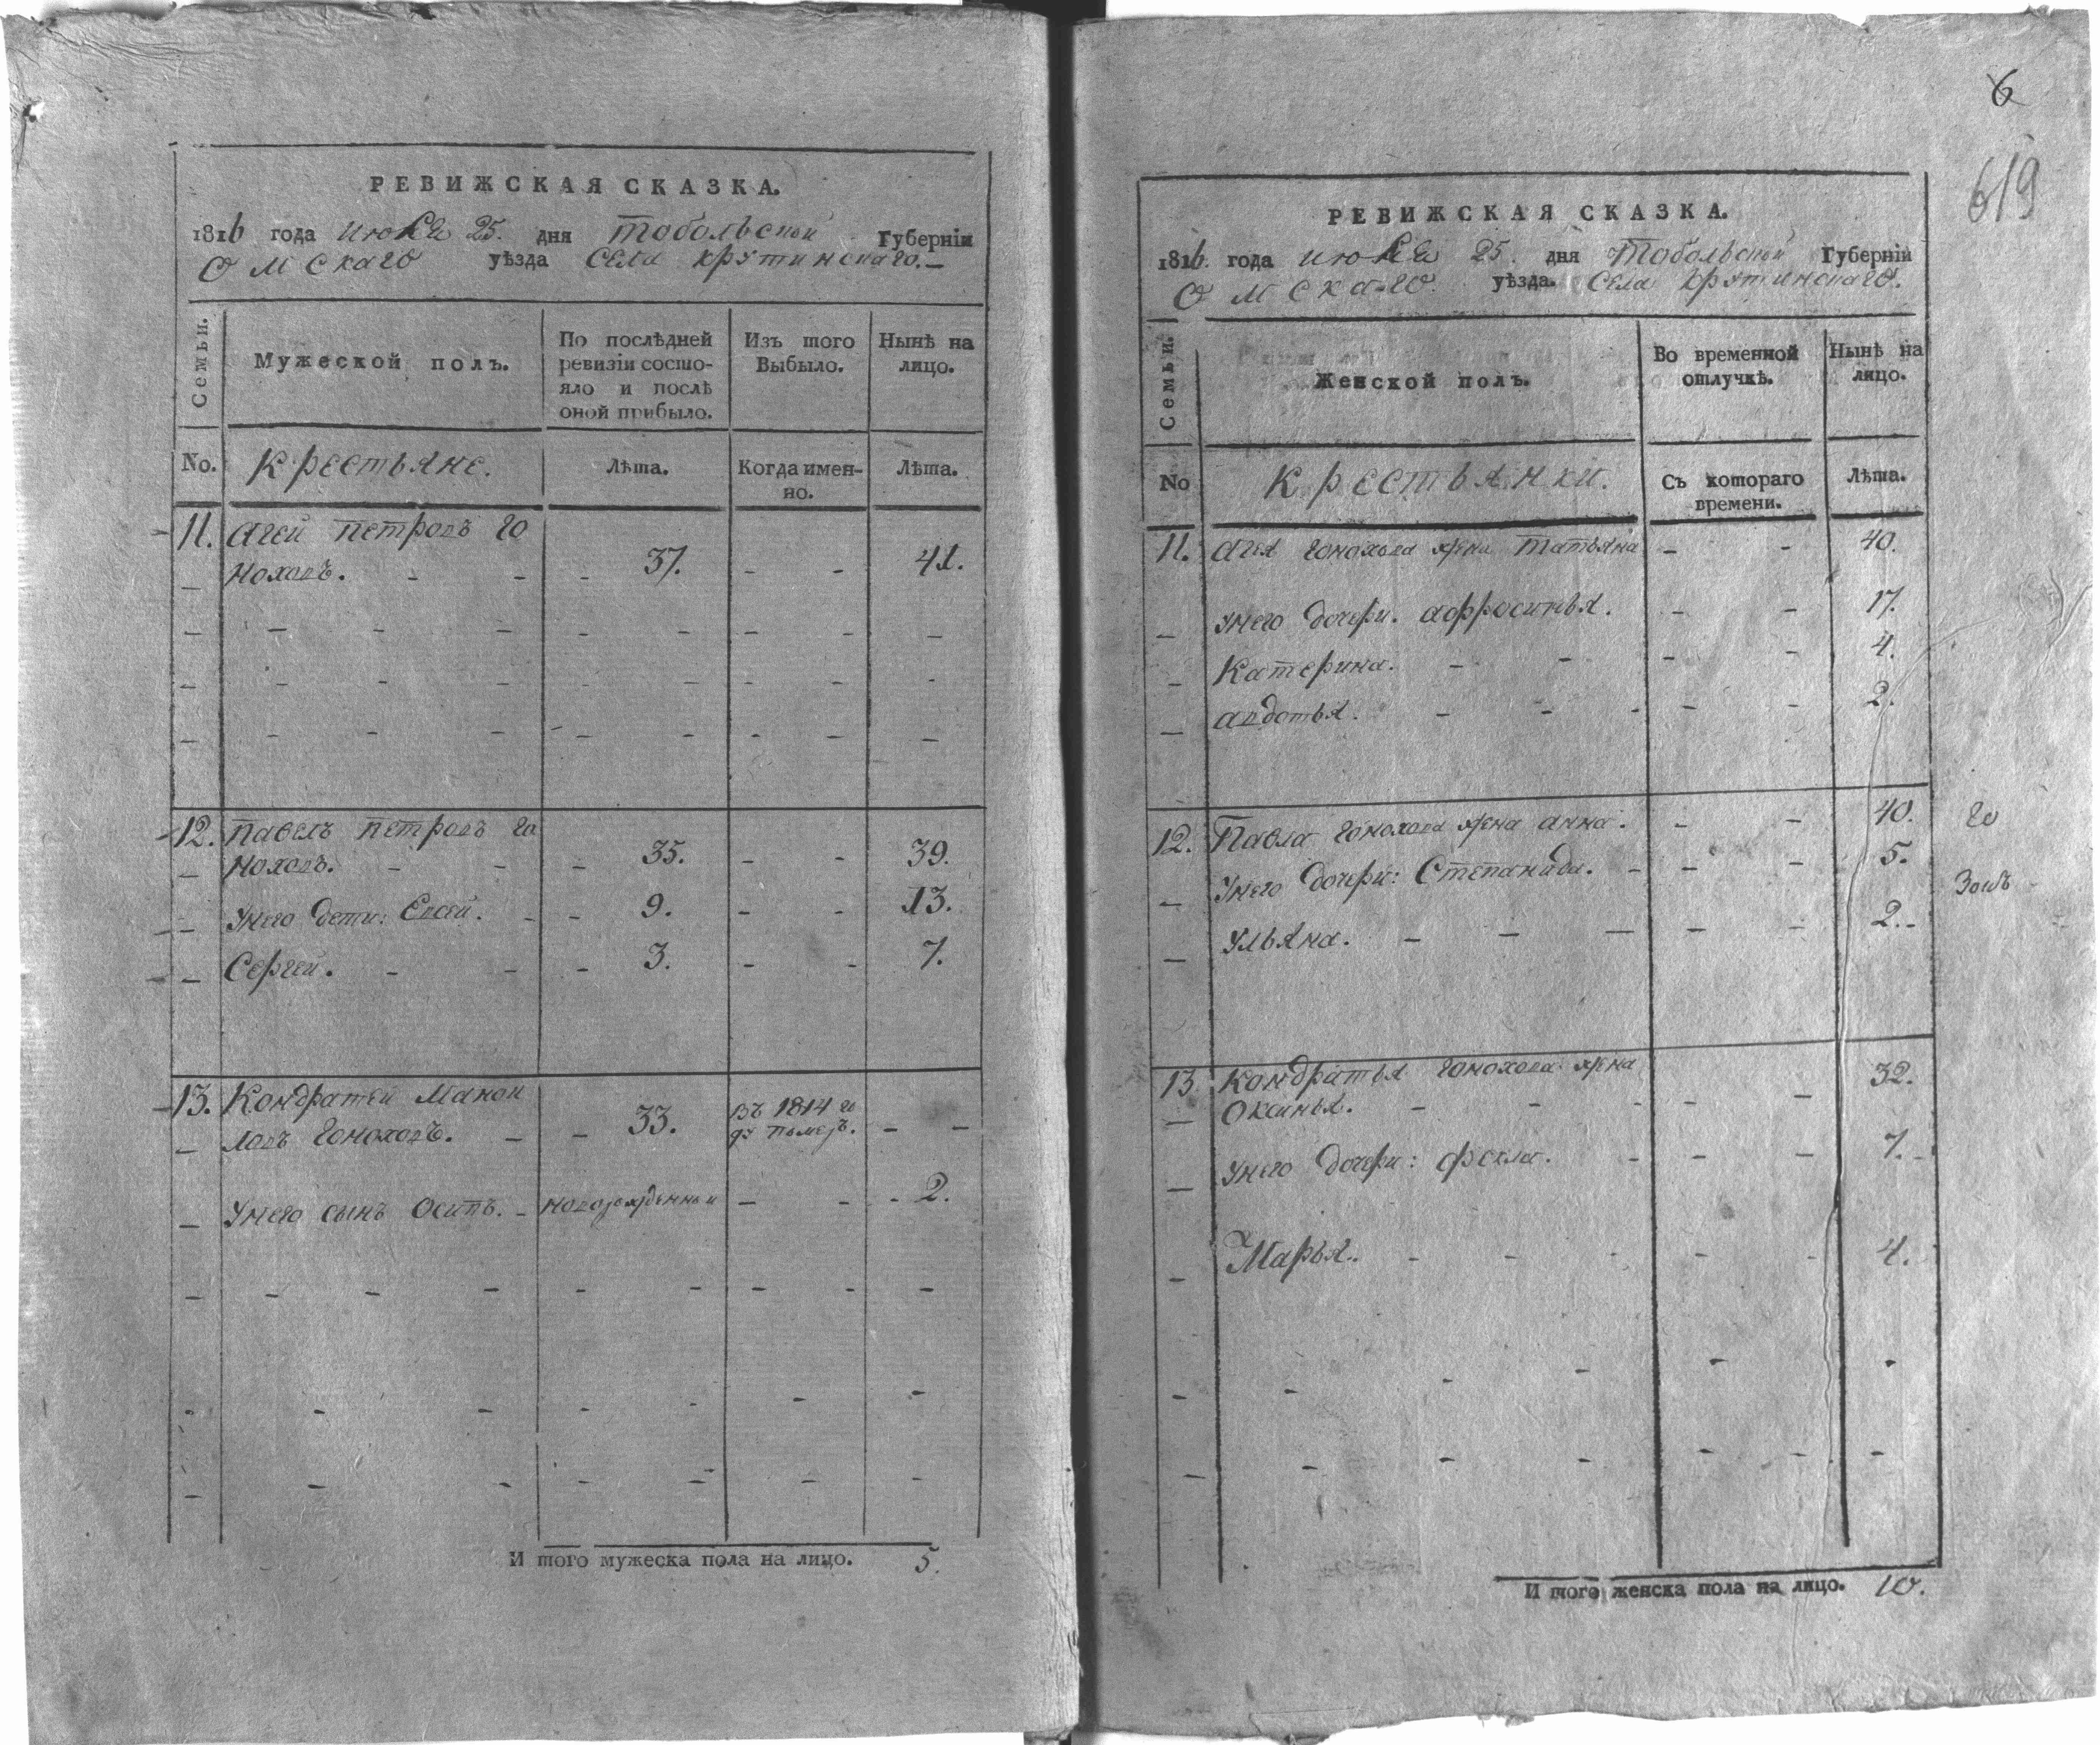 РЕВИЖСКАЯ СКАЗКА.
1816 года июля 25. дня Тобольской Губерніи
Омскаго уѣзда Села Крутинскаго.
Семьи.
Мужеской полъ.
По послѣдней ревизіи состо-
яло и послѣ
оной прибыло.
Изъ того
Выбыло.
Нынѣ на
лицо.
No.
Крестьяне.
Лѣта.
Когда имен-
но.
Лѣта.
11. Агей Петровъ Го
ноховъ. 37. 41.
12. Павелъ Петровъ Го
ноховъ. 35. 39.
Унего дети: Евсей. 9. 13.
Сергей. 3. 7.
13. Кондратей Манои
ловъ Гоноховъ. 33. Въ 1814 го
ду померъ.
Унего сынъ Осипъ. новорожденный 2.
И того мужеска пола на лицо. 5.
6
619
РЕВИЖСКАЯ СКАЗКА.
1816. года июля 25. дня Тобольской Губерніи
Омскаго. уѣзда. Села Крутинскаго.
Семьи.
Женской полъ.
Во временной
отлучкѣ.
Нынѣ на
лицо.
No
Крестьянки.
Съ котораго
времени.
Лѣта.
11. Агея Гонохова жена Татьяна 40.
Унего дочери. Афросинья. 17.
Катерина. 4.
Авдотья. 2.
12. Павла Гонохова жена Анна. 40.
Унего дочери: Степанида. 5.
Ульяна. 2.
13 Кондратья Гонохова жена 32.
Оксинья.
Унего дочери: Фекла. 7.
Марья. 4.
Го
И того женска пола на лицо. 10.